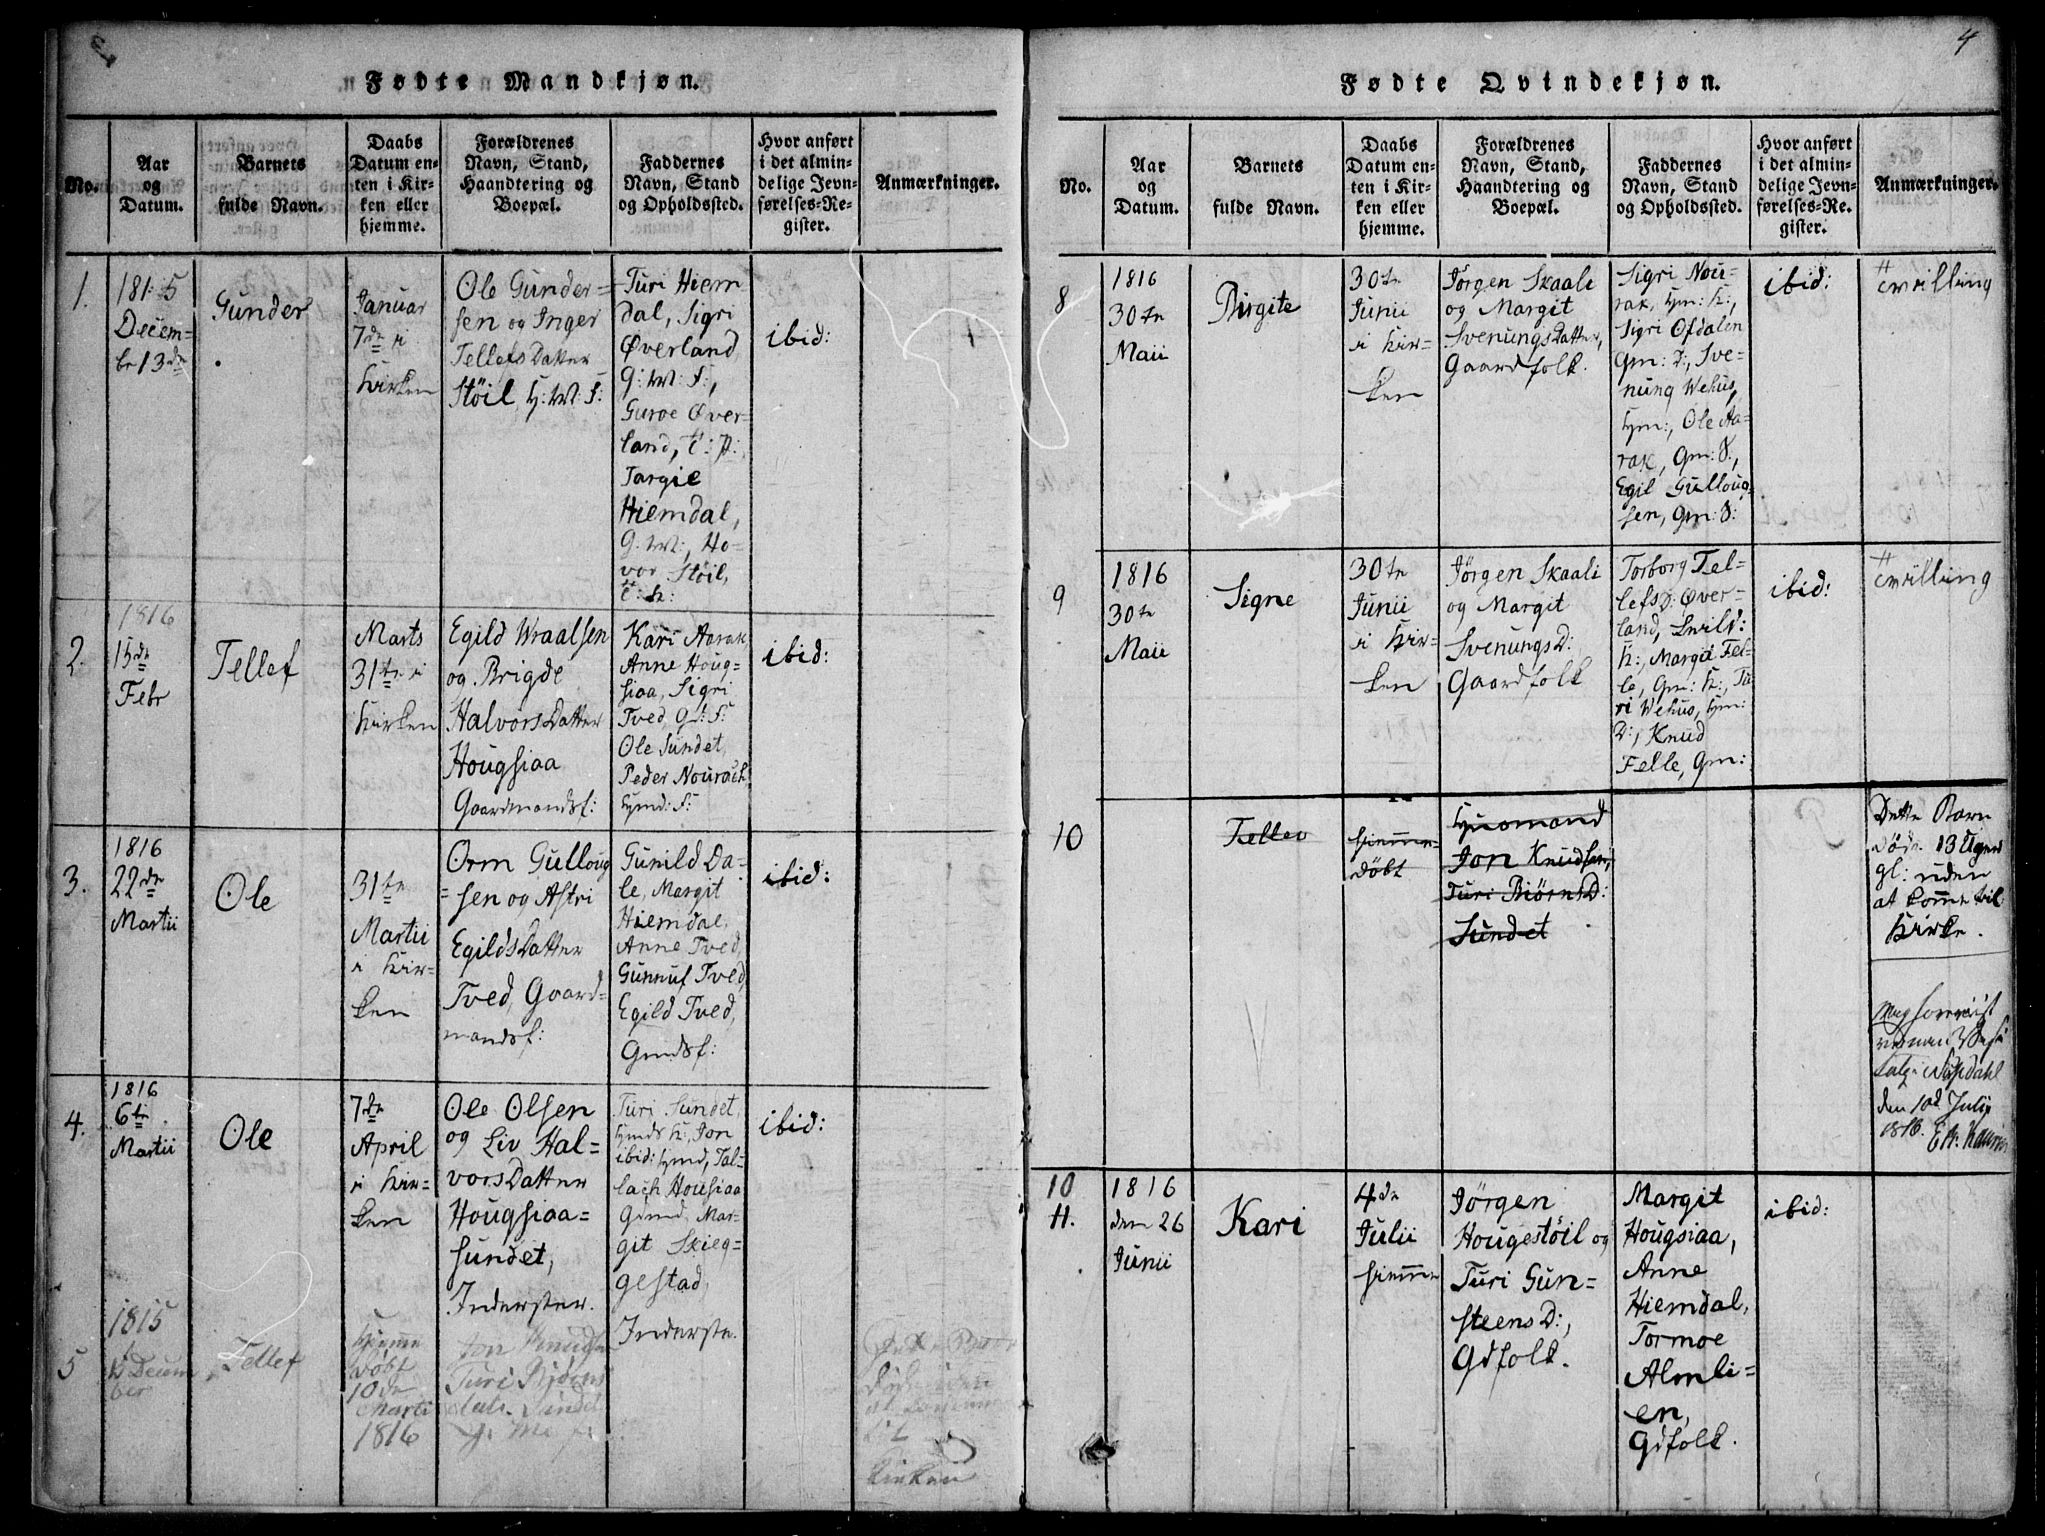 Fødte Mandkjøn.
No.
Aar
og
Datum.
Barnets
fulde Navn.
Daabs
Datum en-
ten i Kir-
ken eller
hjemme.
Forældrenes
Navn, Stand,
Haandtering og
Boepæl.
Faddernes
Navn, Stand
og Opholdssted.
Hvor anført
i det almin-
delige Jevn-
førelses-Re-
gister.
Anmærkninger.
1.
1815
Decem-
br 13de
Gunder
Januar
7de i
Kirken
Ole Gunder=
sen og Inger
TellefsDatter
Støil, H: W: F:
Turi Hiem
dal, Sigri
Øverland
G: W: F:,
Guroe Øver-
land, T: P:
Targie
Hiemdal,
G: W:, Ho-
vor Støil,
T: K:
ibid:
2.
1816
15de
Febr
Tellef
Marts
31te i
Kirken
Egild Wraalsen
og Brigde
HalvorsDatter
Hougsiaa
Gaardmandsf:
Kari Aarak
Anne Houg-
siaa, Sigri
Tved, Gd: F:
Ole Sundet,
Peder Nourack
Hymd: F:
ibid:
3.
1816
22de
Martii
Ole
31te
Martii
i Kir-
ken
Orm Gulloug
=sen og Astri
EgildsDatter
Tved, Gaard=
mandsf:
Gunild Da-
le, Margit
Hiemdal,
Anne Tved,
Gunnuf Tved,
Egild Tved,
Gmdsf:
ibid:
4.
1816
6te
Martii
Ole
7de
April
i Kir-
ken
Ole Olsen
og Liv Hal-
vorsDatter
Hougsiaa-
sundet,
Inderster.
Turi Sundet,
Hymds K:, Jon
ibid: Hymd, Tal-
lach Housiaa
Gdmd, Mar-
git Skieg-
gestad,
Inderste.
ibid:
5
1815
Decem
ber
Tellef
Hjemme
døbt
10de
Marti
1816
Jon Knudsen
Turi Biörns
Kirken
4
Fødte Qvindekjøn.
No.
Aar
og
Datum.
Barnets
fulde Navn.
Daabs
Datum en-
ten i Kir-
ken eller
hjemme.
Forældrenes
Navn, Stand,
Haandtering og
Boepæl.
Faddernes
Navn, Stand
og Opholdssted.
Hvor anført
i det almin-
delige Jevn-
førelses-Re-
gister.
Anmærkninger.
8
1816
30te
Maii
Birgite
30te
Junii
i Kir-
ken
Jörgen Skaali
og Margit
SvenungsDatter,
Gaardfolk.
Sigri Nou-
rak, Hym: K:,
Sigri Ofdalen
Gm: D:, Sve-
nung Wehus,
Hym:, Ole Aa-
rak, Gm: S:,
Egil Gulloug-
sen, Gm: S:
ibid:
Tvilling
9
1816
30te
Maii
Signe
30te
Junii
i Kir-
ken
Jörgen Skaali
og Margit
SvenungsD:
Gaardfolk
Torborg Tel-
lefsD: Øver-
land, Svild:
K:, Margit Fel-
le, Gm: K:, Tu
ri Wehus, Hym:
D:, Knud
Felle, Gm:
ibid:
Tvilling
10
Tellev
Hjemme-
döbt
Huusmand
Jon Knudsen,
Turi BiörnsD:
Sundet
Dette Barn
døde 13 Uger
gl: uden
at komme til
Kirke.
den 10d July
1816.
10
11.
1816
den 26
Junii
Kari
4de
Julii
Hjemme
Jörgen
Hougestöil og
Turi Gun-
steensD:,
Gdfolk.
Margit
Hougsiaa,
Anne
Hiemdal,
Tormoe
Almli-
en,
Gdfolk.
ibid: